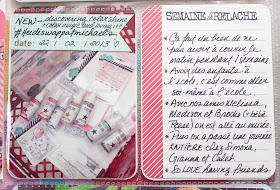 NEW - discovering color shine
#heidiswappatmichaels
date: 22 / 02 / 2013
SEMAINE de RELÂCHE
Ça fait du bien de ne
pas avoir à courir le
matin pendant 1 semaine.
• Avoir des enfants à
l'école, c'est comme aller
soi-même à l'école.
• Avec nos amis Melissa,
Madison et Brooks (+ bébé
Rose) on est allé au musée.
• Puis on a passé une soirée
KINÉCHEZ Simona,
Gianna et Caleb.
• SO LOVE having friends